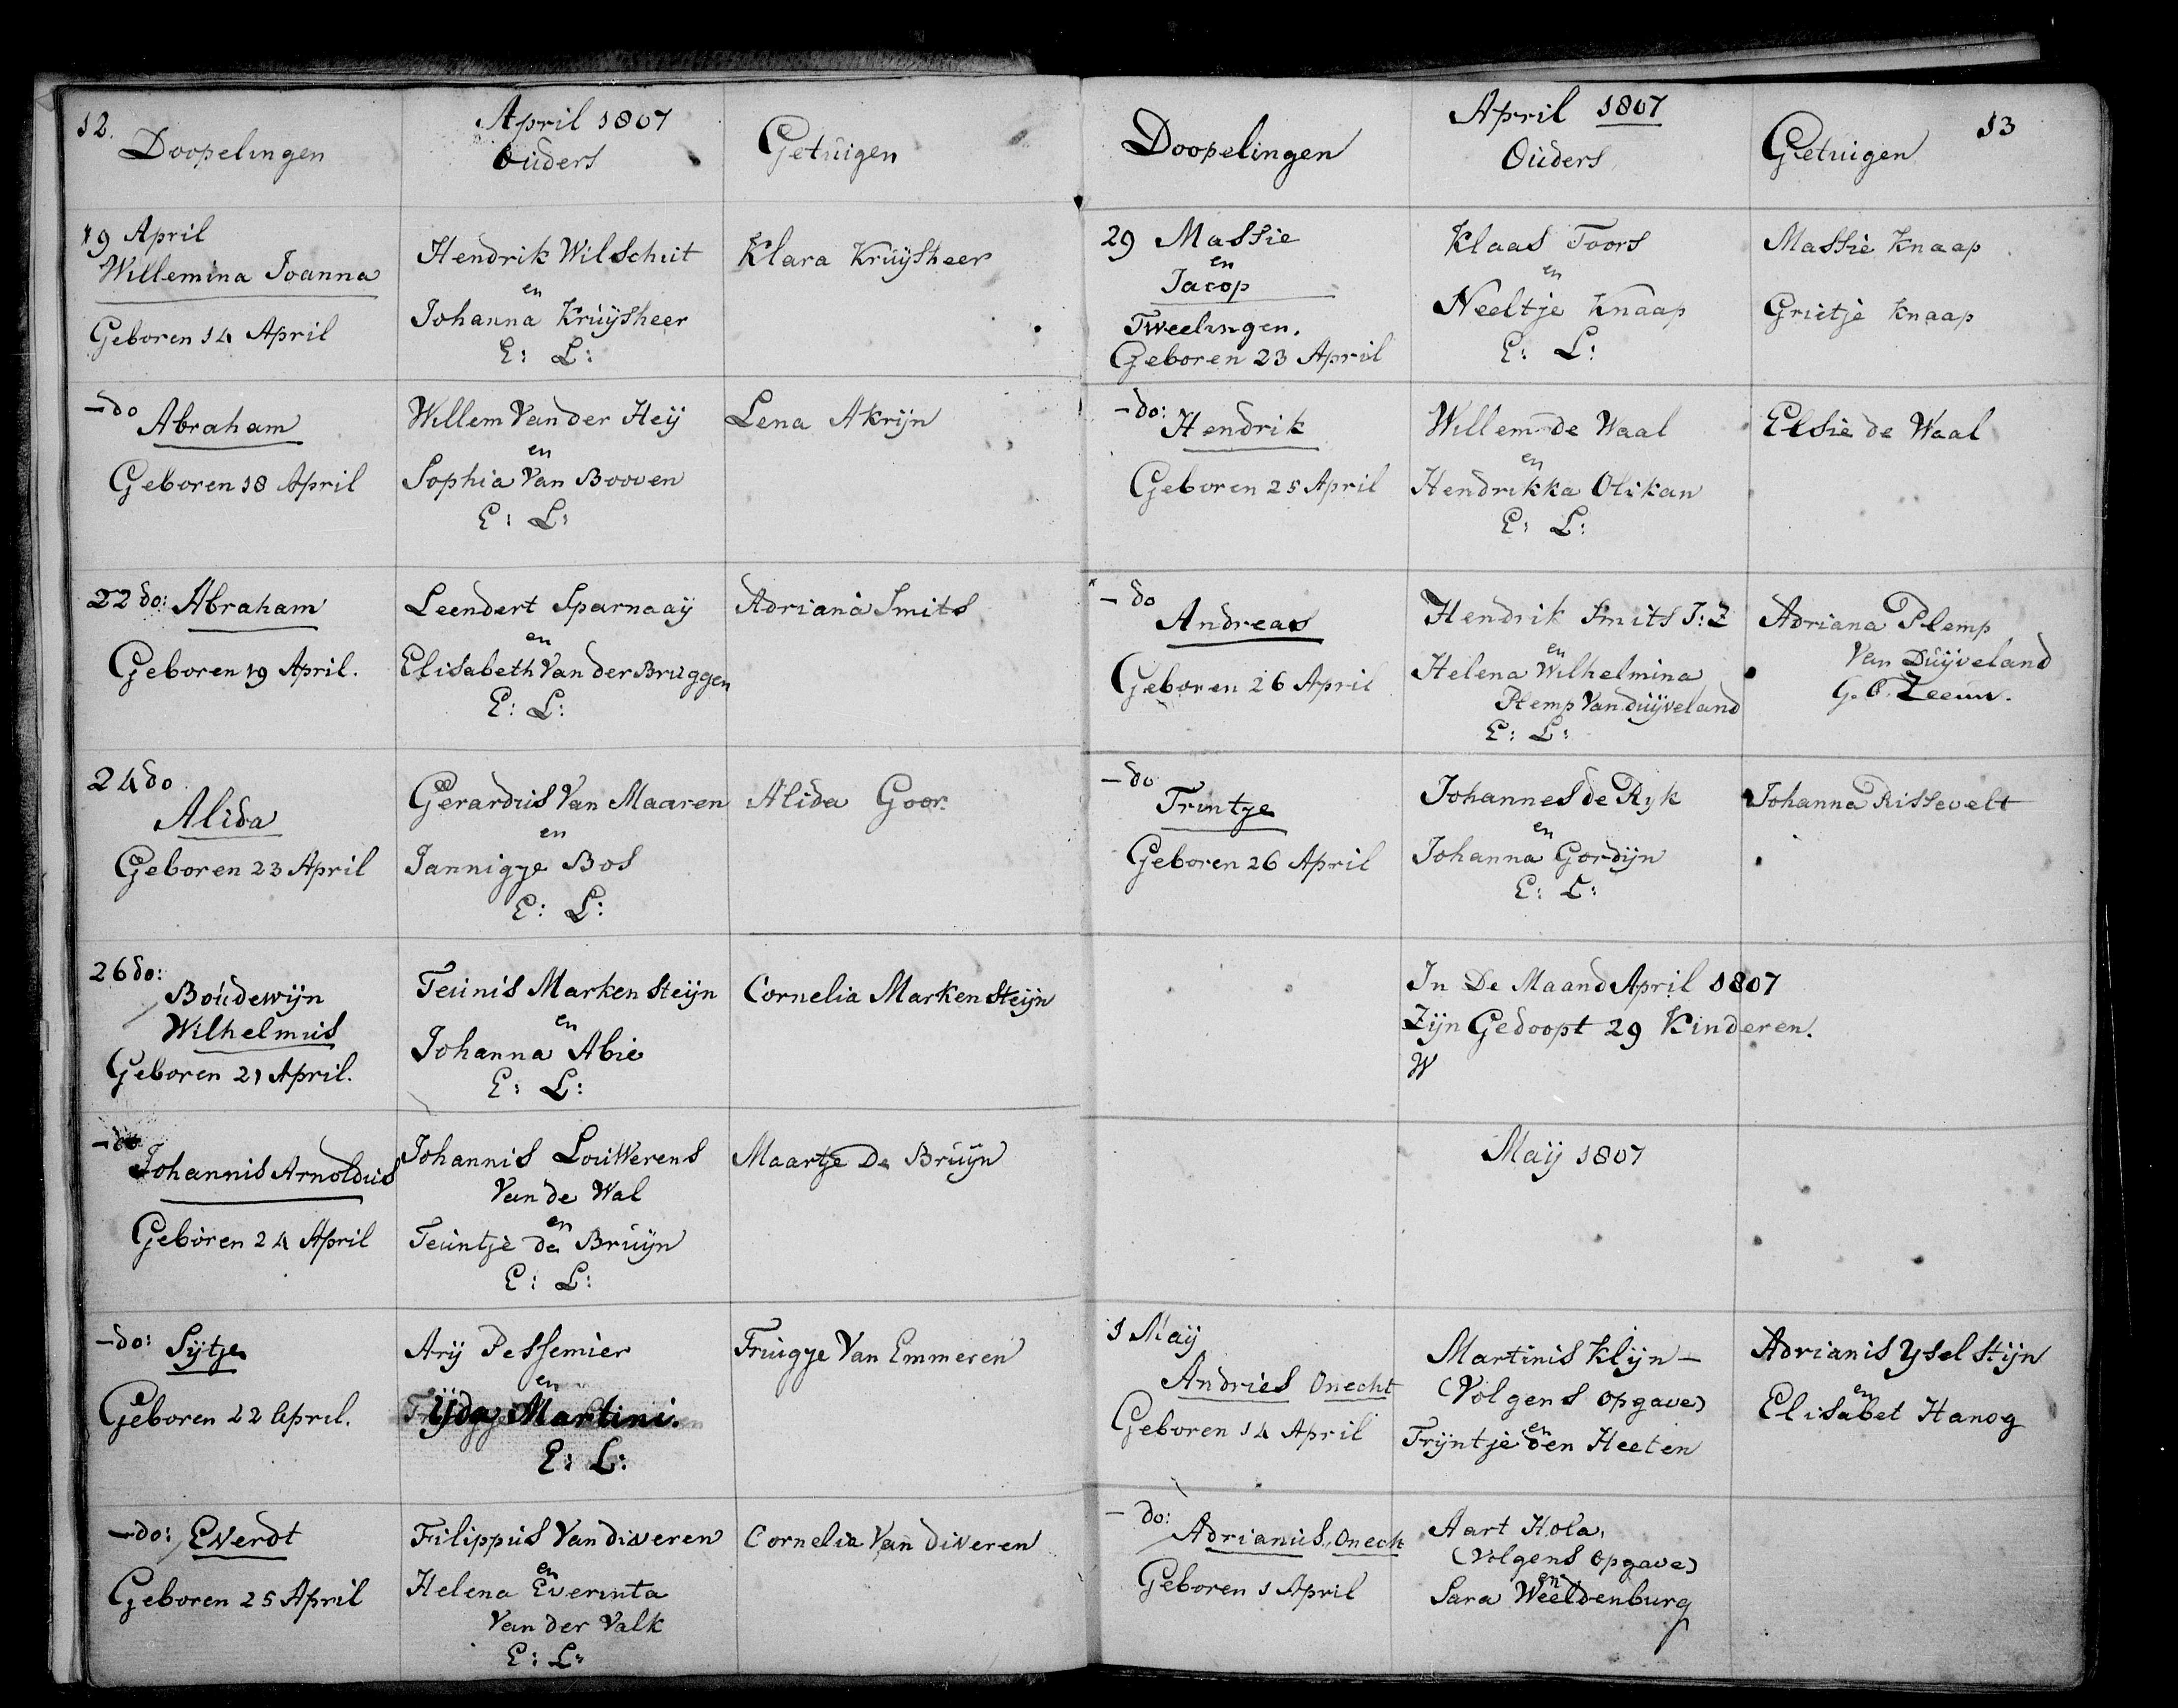 12.
April 1807
Doopelingen
Ouders
Getuigen
19 April
Willemina Joanna
Geboren 14 April
Hendrik Wilschut
en
Johanna Kruijsheer
E: L:
Klara Kruijsheer
- do
Abraham
Geboren 18 April
Willem Van der Heij
en
Sophia Van Booven
E: L:
Lena Akrijn
22 do: Abraham
Geboren 19 April.
Leendert Sparnaaij
en
Elisabeth Van der Bruggen
E: L:
Adriana Smits
24 do
Alida
Geboren 23 April
Gerardus Van Maaren
en
Jannigje Bos
E: L:
Alida Goor.
26 do:
Boudewijn
Wilhelmus
Geboren 21 April.
Teunis Markensteijn
en
Johanna Abie
E: L:
Cornelia Markensteijn
- do
Johannis Arnoldus
Geboren 24 April
Johannis Louwerens
Van de Wal
en
Teuntje de Bruijn
E: L:
Maartje De Bruijn
- do: Sijtje
Geboren 22 April.
Arij Pessemier
en
Ijda Martini.
E: L:
Truigje Van Emmeren
- do: Everdt
Geboren 25 April
Filippus Van diveren
en
Helena Everinta
Van der Valk
E: L:
Cornelia Van diveren
April 1807
13
Doopelingen
Ouders
Getuigen
29 Massie
en
Jacop
Tweelingen.
Geboren 23 April
Klaas Toors
en
Neeltje Knaap
E: L:
Massie Knaap
Grietje Knaap
- do:
Hendrik
Geboren 25 April
Willem de Waal
en
Hendrikka Olikan
E: L:
Elsie de Waal
- do
Andreas
Geboren 26 April
Hendrik Smits J:Z
en
Helena Wilhelmina
Plemp Van duijveland
E: L:
Adriana Plemp
Van Duijveland
Zeeuw.
- do
Trintje
Geboren 26 April
Johannes de Ryk
en
Johanna Gordijn
E: L:
Johanna Rissevelt
In De Maand April 1807
Zijn Gedoopt 29 Kinderen.
W
Maij 1807
1 Maij
Andries Onecht
Geboren 14 April
Martinis Klijn -
(Volgens opgave)
en
Trijntje den Heeten
Adrianis Yselstijn
en
Elisabet Hanog
- do:
Adrianus, Onech
Geboren 1 April
Aart Hola,
(Volgens opgave)
en
Sara Weeldenburg